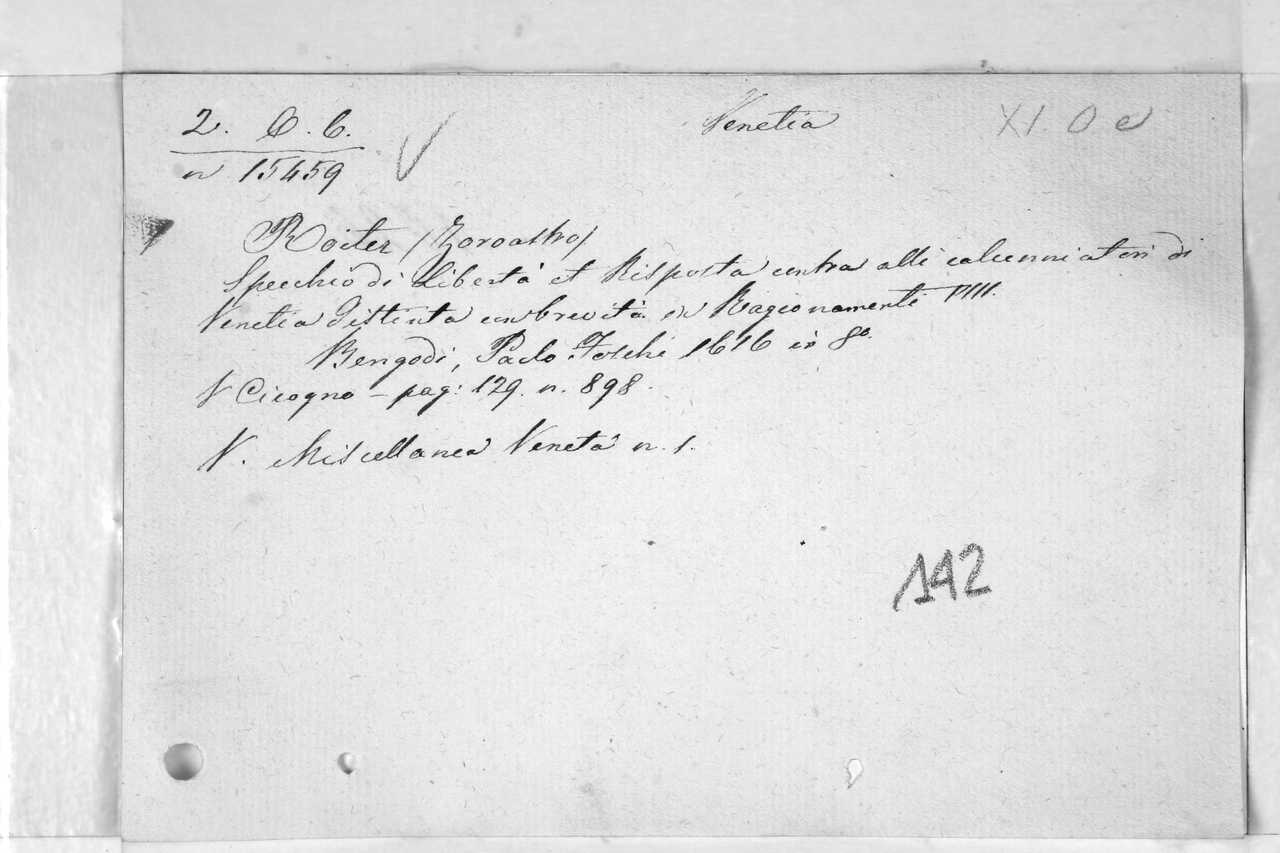 2. C. C.
n 15459
Venetia
XI O e
Roiter (Zoroastro)
Specchio di Libertà et Risposta contra alli calunniatori di
Venetia distinta con brevità in Ragionamenti VIII.
Bengodi, Paolo Foschi 1616 in 8°.
V Cicogna - pag: 129. n. 898.
V. Miscellanea Veneta n. 1.
142